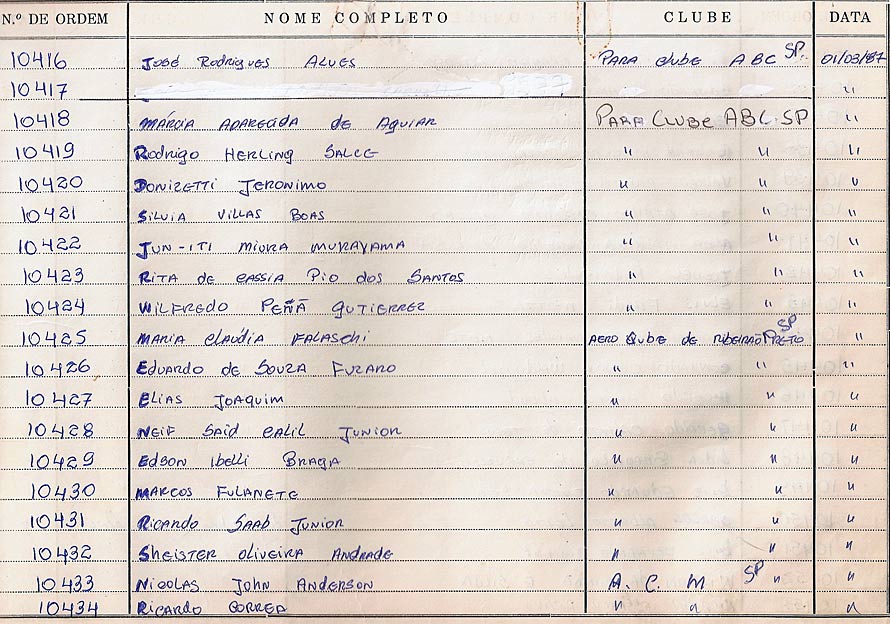 N.º DE ORDEM NOME COMPLETO CLUBE DATA
10416 José Rodrigues Alves Para Clube ABC SP. 01/03/87
10417 "
10418 Márcia Aparecida de Aguiar Para Clube ABC SP "
10419 Rodrigo Herling Salce " " "
10420 Donizetti Jeronimo " " "
10421 Silvia Villas Boas " " "
10422 Jun-iti Miura Murayama " " "
10423 Rita de Cassia Pio dos Santos " " "
10424 Wilfredo Peñã Gutierrez " " "
10425 Maria Claudia Falaschi Aero Clube de Ribeirão Preto SP "
10426 Eduardo de Souza Fuzaro " " "
10427 Elias Joaquim " " "
10428 Neif Said Calil Junior " " "
10429 Edson Ibelli Braga " " "
10430 Marcos Fulanete " " "
10431 Ricardo Saab Junior " " "
10432 Sheister Oliveira Andrade " " "
10433 Nicolas John Anderson A. C. M SP " "
10434 Ricardo Correa " " "